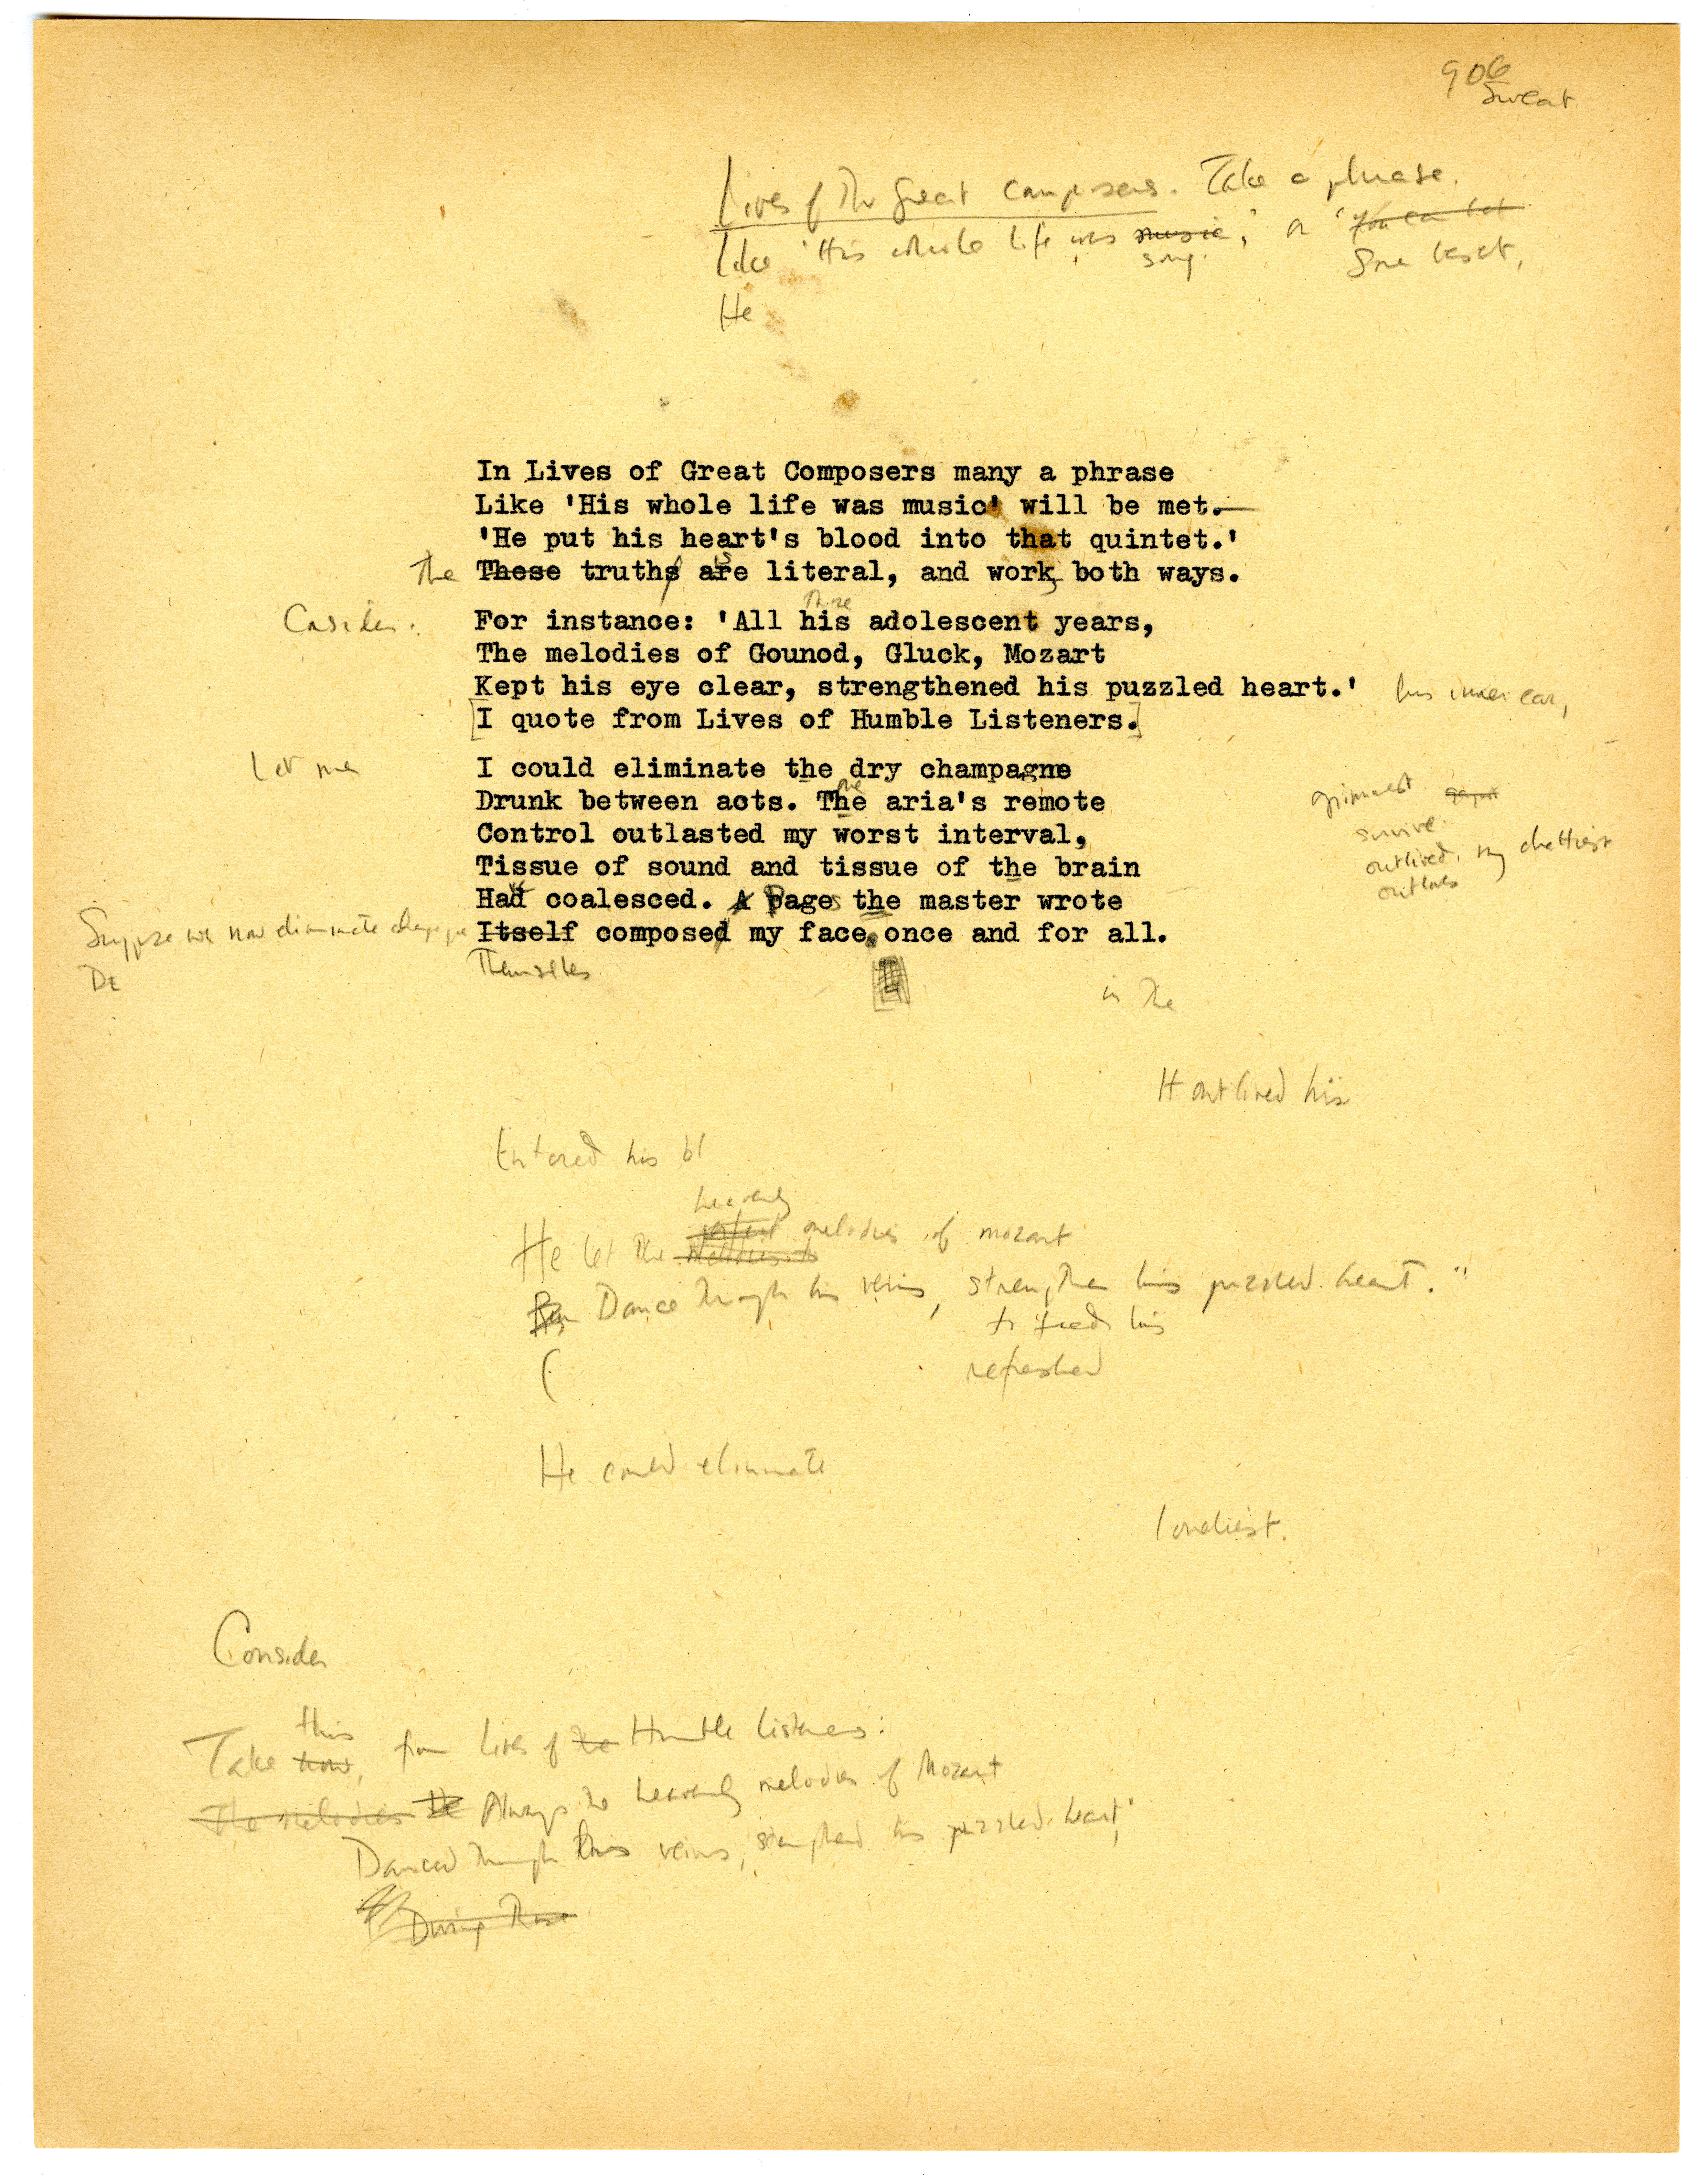 906
Sweat
Lives of The Great Composers. Take a phrase.
like 'His whole life was music,' or 'You can bet
song.
He
In Lives of Great Composers many a phrase
Like 'His whole life was music' will be met.—
'He put his heart's blood into that quintet.'
The These truths are literal, and work both ways.
is
Consider: For instance: 'All his adolescent years,
The melodies of Gounod, Gluck, Mozart
Kept his eye clear, strengthened his puzzled heart.' his inner ear,
[I quote from Lives of Humble Listeners.]
Let me I could eliminate the dry champagne
Drunk between acts. The aria's remote
grimmest
Control outlasted my worst interval,
survive.
outlived. my
outlives
Tissue of sound and tissue of the brain
Had coalesced. A Pages the master wrote
Suppose we now eliminate champagne Itself composed my face once and for all.
De
Themselves
in The
It outlived his
Entered his bl
heavenly
He let the melodies of mozart
Dance Through his veins, strengthen his puzzled heart."
to feed his
( refreshed
He could eliminate
loneliest.
Consider
this
Take how, from Lives of the Humble Listeners:
The melodies He Always the heavenly melodies of Mozart
Danced Through his veins, strengthened his puzzled heart,'
During Those